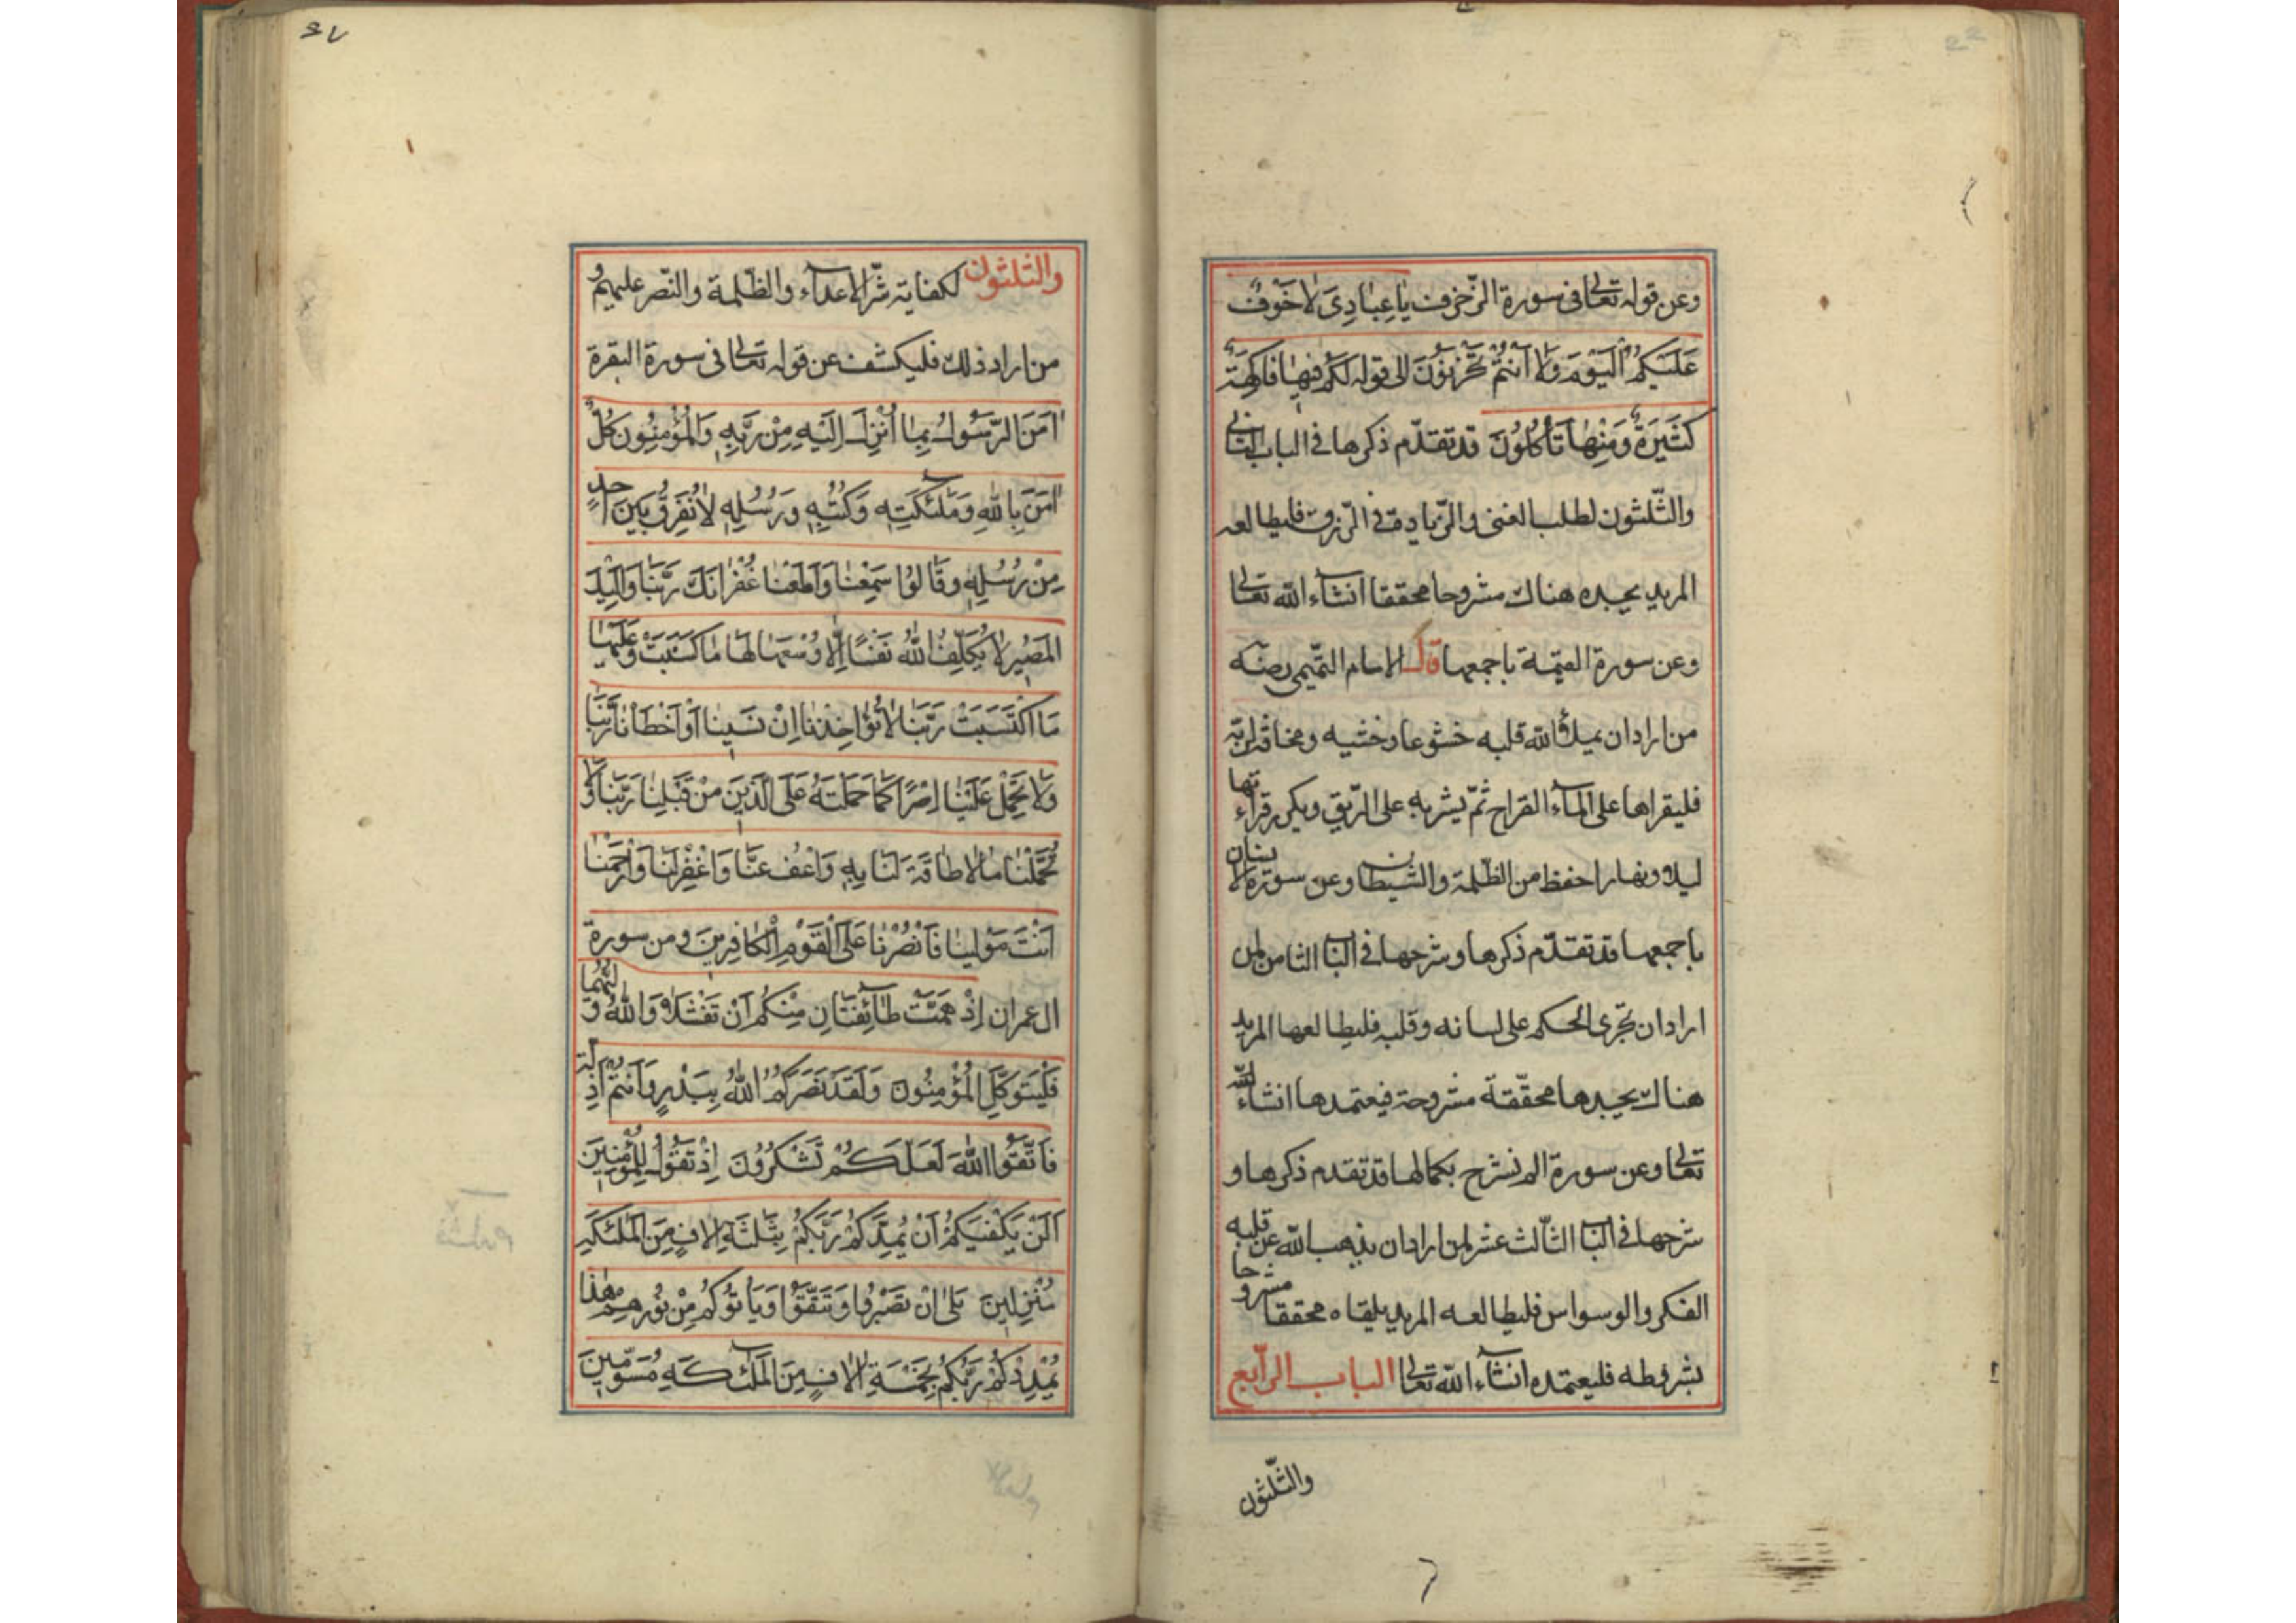 وعن قوله تعالى في سورة الزخرف يَا عِبَادِيَ لَا خَوْفٌ
عَلَيْكُمُ الْيَوْمَ وَلَا أَنْتُمْ تَحْزَنُونَ الى قوله لَكُمْ فِيهَا فَاكِهَةٌ
كَثِيرَةٌ وَمِنْهَا تَأْكُلُونَ قد تقدّم ذكرها في الباب الثاني
والثّلثون لطلب الغنى والزّيادة في الرّزق فليطالعه
المريد يجده هناك مشروحا محققا انشآء الله تعالى
وعن سورة القيمة باجمعها قال الامام التّميمي رضه
من اراد ان يملأ الله قلبه خشوعا وخشيه ومخافة لربّه
فليقراها على المآء القراح ثمّ يشربه على الرّيق ويكرر قراءتها
ليلا ونهارا حفظ من الظّلمة والشيطان وعن سورة الانسان
باجمعها قد تقدّم ذكرها وشرحها في الباب الثامن لمن
اراد ان تجرى الحكم على لسانه وقلبه فليطالعها المريد
هناك يجدها محقّقة مشروحة فيعتمدها انشاء الله
تعالى وعن سورة الم نشرح بكمالها قد تقدم ذكرها و
شرحها في الباب الثّالث عشر لمن اراد ان يذهب الله عن قلبه
الفكر والوسواس فليطالعه المريد يلقاه محققا مشروحا
بشروطه فليعتمده انشآء الله تعالى الباب الرّابع
والثّلثون
والثلثون لكفاية شرّ الاعدآء والظّلمة والنّصر عليهم و
من اراد ذلك فليكشف عن قوله تعالى في سورة البقرة
اٰمَنَ الرَّسُولُ بِمَا أُنْزِلَ إِلَيْهِ مِنْ رَبِّهِ وَالْمُؤْمِنُونَ كُلٌّ
اٰمَنَ بِاللهِ وَمَلٰئِكَتِهِ وَكُتُبِهِ وَرُسُلِهِ لَا نُفَرِّقُ بَيْنَ اَحَدٍ
مِنْ رُسُلِهِ وَقَالُوا سَمِعْنَا وَاَطَعْنَا غُفْرَانَكَ رَبَّنَا وَاِلَيْكَ
الْمَصِيرُ لَا يُكَلِّفُ اللهُ نَفْسًا اِلَّا وُسْعَهَا لَهَا مَا كَسَبَتْ وَعَلَيْهَا
مَا اكْتَسَبَتْ رَبَّنَا لَا تُؤَاخِذْنَا اِنْ نَسِينَا اَوْ اَخْطَأْنَا رَبَّنَا
وَلَا تَحْمِلْ عَلَيْنَا اِصْرًا كَمَا حَمَلْتَهُ عَلَى الَّذِينَ مِنْ قَبْلِنَا رَبَّنَا وَلَا
تُحَمِّلْنَا مَا لَا طَاقَةَ لَنَا بِهِ وَاعْفُ عَنَّا وَاغْفِرْ لَنَا وَارْحَمْنَا
اَنْتَ مَوْلٰينَا فَانْصُرْنَا عَلَى الْقَوْمِ الْكَافِرِينَ ومن سورة
ال عمران اِذْ هَمَّتْ طَآئِفَتَانِ مِنْكُمْ اَنْ تَفْشَلَا وَاللهُ وَلِيُّهُمَا و
فَلْيَتَوَكَّلِ الْمُؤْمِنُونَ وَلَقَدْ نَصَرَكُمُ اللهُ بِبَدْرٍ وَاَنْتُمْ اَذِلَّةٌ
فَاتَّقُوا اللهَ لَعَلَّكُمْ تَشْكُرُونَ اِذْ تَقُولُ لِلْمُؤْمِنِينَ
اَلَنْ يَكْفِيَكُمْ اَنْ يُمِدَّكُمْ رَبُّكُمْ بِثَلٰثَةِ اٰلَافٍ مِنَ الْمَلٰئِكَةِ
مُنْزَلِينَ بَلٰى اِنْ تَصْبِرُوا وَتَتَّقُوا وَيَأْتُوكُمْ مِنْ فَوْرِهِمْ هٰذَا
يُمْدِدْكُمْ رَبُّكُمْ بِخَمْسَةِ اٰلَافٍ مِنَ الْمَلٰئِكَةِ مُسَوِّمِينَ